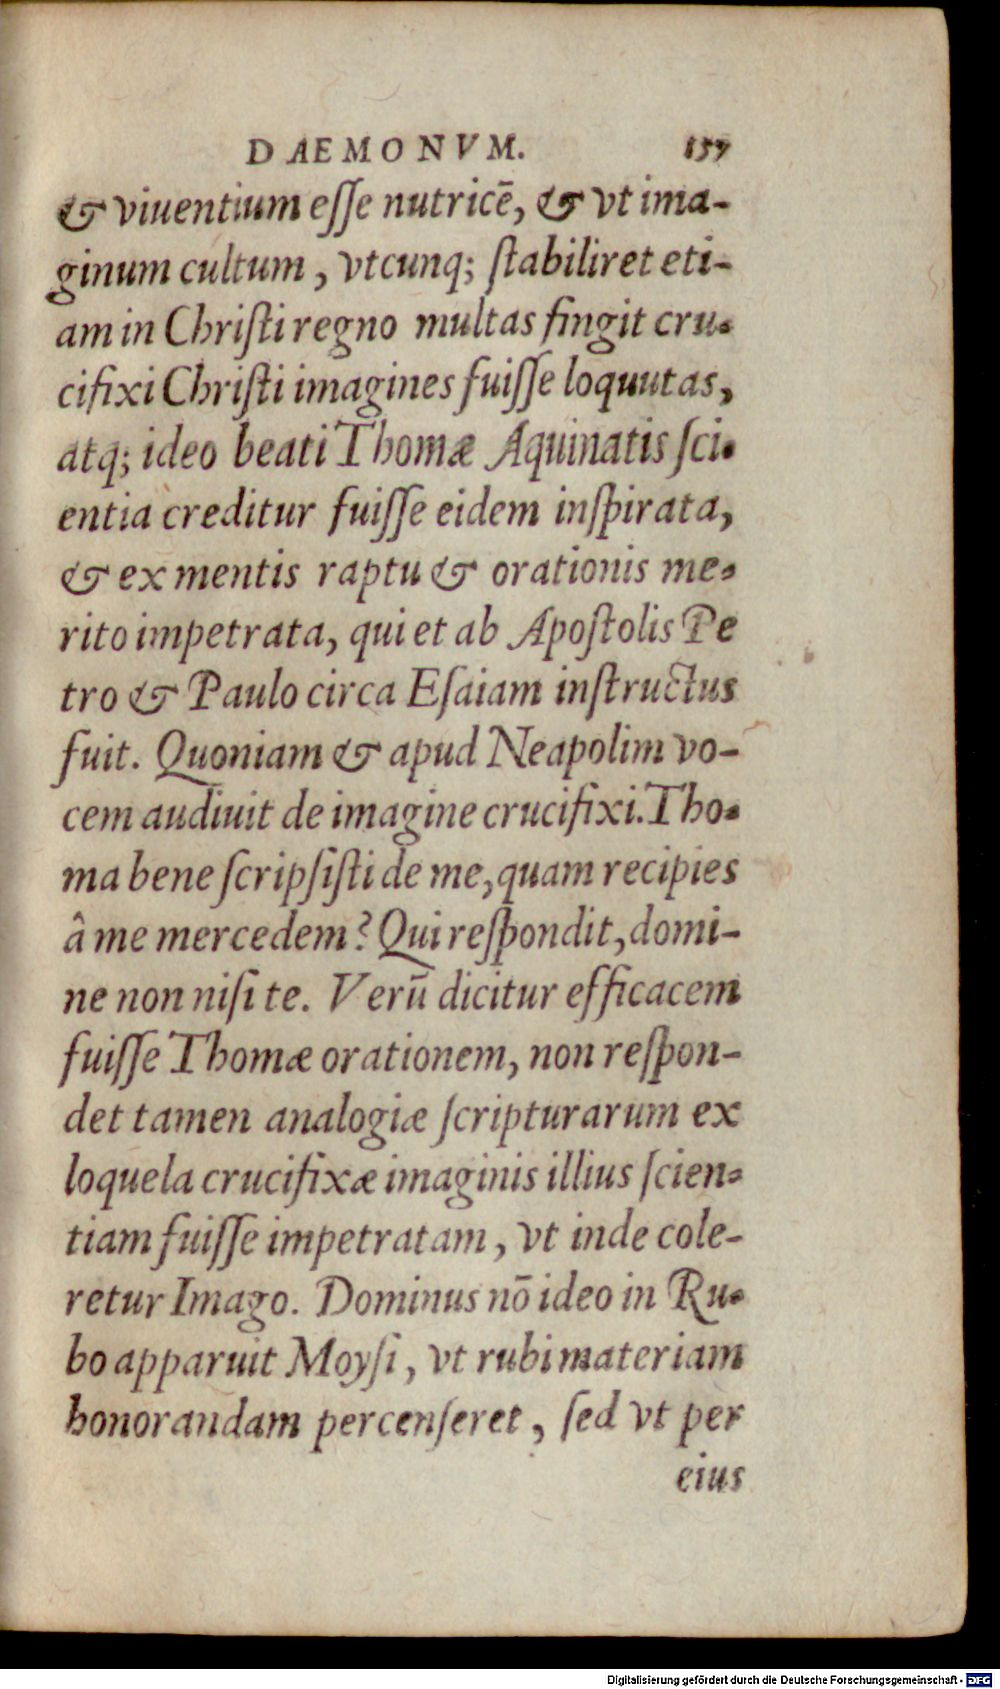 DAEMONVM. 157
& viuentium eſſe nutricē, & vt ima-
ginum cultum, vtcunq; ſtabiliret eti-
am in Chriſti regno multas fingit cru-
cifixi Chriſti imagines fuiſſe loquutas,
atq; ideo beati Thomæ Aquinatis ſci-
entia creditur fuiſſe eidem inſpirata,
& ex mentis raptu & orationis me-
rito impetrata, qui et ab Apoſtolis Pe
tro & Paulo circa Eſaiam inſtructus
fuit. Quoniam & apud Neapolim vo-
cem audiuit de imagine crucifixi. Tho-
ma bene ſcripſiſti de me, quam recipies
â me mercedem? Qui reſpondit, domi-
ne non niſi te. Verū dicitur efficacem
fuiſſe Thomæ orationem, non reſpon-
det tamen analogiæ ſcripturarum ex
loquela crucifixæ imaginis illius ſcien-
tiam fuiſſe impetratam, vt inde cole-
retur Imago. Dominus nō ideo in Ru-
bo apparuit Moyſi, vt rubi materiam
honorandam percenſeret, ſed vt per
eius
Digitalisierung gefördert durch die Deutsche Forschungsgemeinschaft - DFG